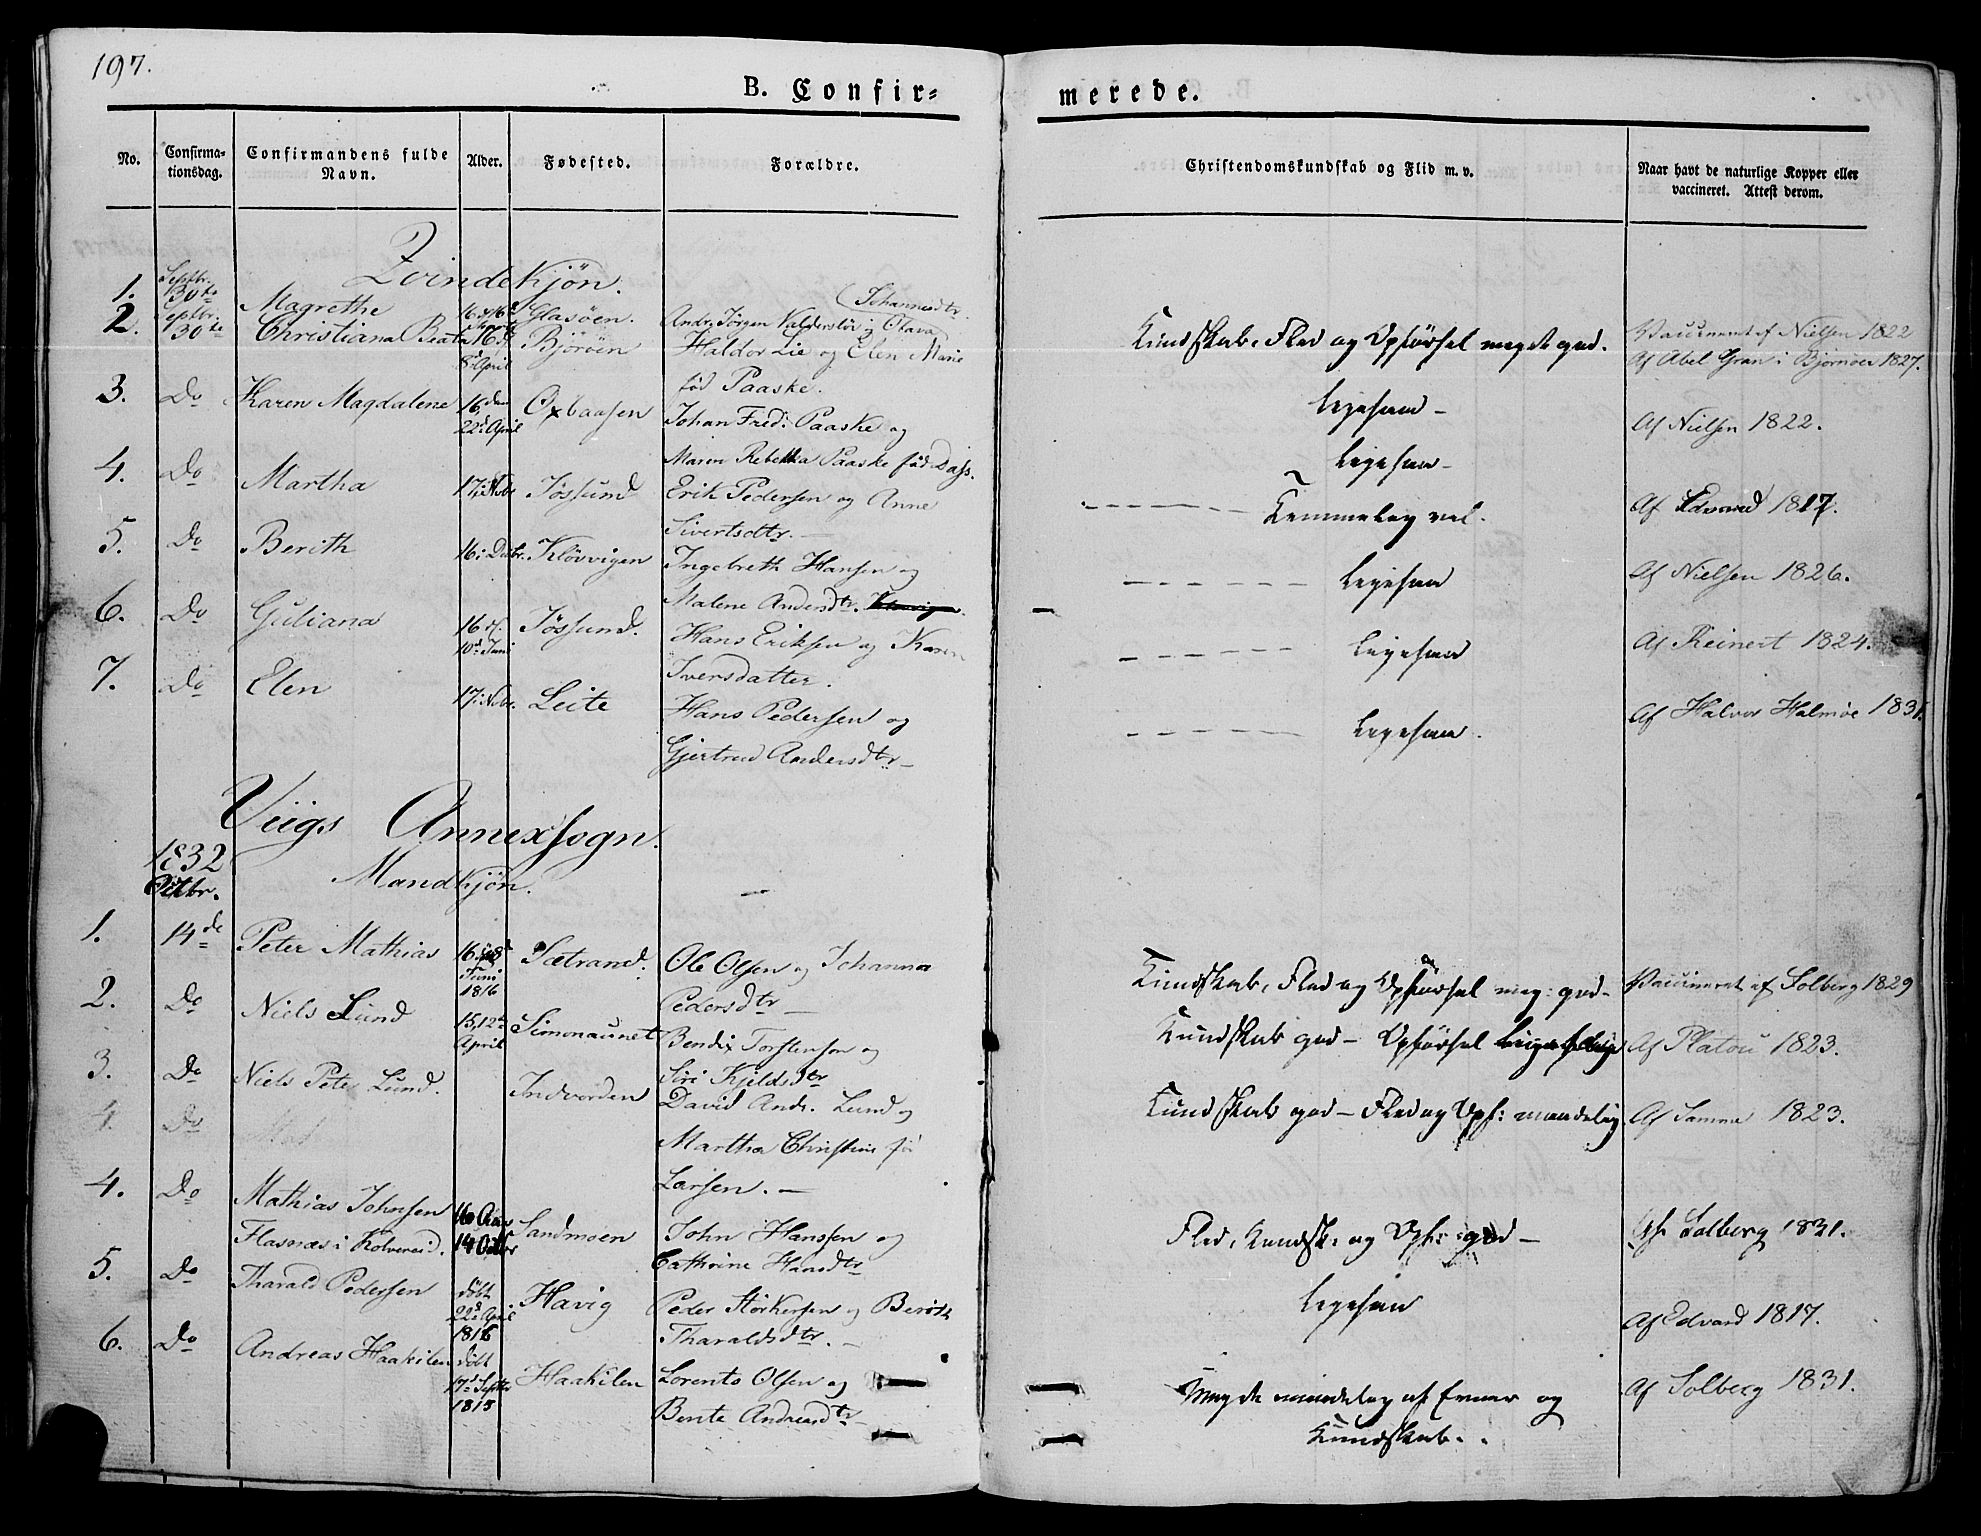 197.
B. Confir=
merede.
No.
Confirma-
tionsdag.
Confirmandens fulde
Navn.
Alder.
Fødested.
Forældre.
Christendomskundskab og Flid m. v.
Naar havt de naturlige Kopper eller
vaccineret. Attest derom.
Qvindekjön.
1. Septbr. 30te Magrethe Glasöen. Andr. Jörgen og Olava
Johannesdtr.
2. Septbr. 30te Christiana Beata 16 Björöen Haldor Lie og Elen Marie
8d April
född Paaske.
Kundskab, Flid og Opförsel meget god.
Vaccineret af Nielsen 1822
Af Abel Gran i Bjørnøer 1827.
3. Do Karen Magdalene 16 Oxbaasen Johan Fred: Paaske og
22d April
Maren Rebekka Paaske föd Dass.
ligesaa - Af Nielsen 1822.
ligesaa -
4. Do Martha 17 i Nobr Jössund Erik Pedersen og Anne
Sivertsdtr. -
Temmelig vel. Af Edvard 1817.
5. Do Berith 16 i Decbr. Klövvigen Ingebreth Hansen og
Malene Andersdtr.
ligesaa Af Nielsen 1826.
6. Do Guliana 16 Jössund. Hans Eriksen og Karen
10d Juni
Iversdatter.
ligesaa Af Reinert 1824.
7. Do Elen 17 i Nobr. Leite Hans Pedersen og
Gjertrud Andersdtr -
ligesaa. Af Halvor Halmöe 1831.
Viigs Annexsogn.
1832
Octbr.
Mandkjön.
1. 14de Peter Mathias 16 Sætrand. Ole Olsen og Johanna
Juni
1816
Pedersdtr -
Kundskab, Flid og Opförsel meg: god - Vaccineret af Solberg 1829
2. Do Niels Lund 15, 12te Simonaunet Bendix Torstensen og
April
Siri Kjeldsdtr
Kundskab god - Opförsel Af Platou 1823.
3. Do Niels Peter Lund. Indvorden David Andr. Lund og
Martha Christine
Larsen. -
Kundskab god - Flid og Opf: maadelig Af Samme 1823.
4. Do
4. Do Mathias Johnsen 16 Aar Sandmoen John Hanssen og
Flasnæs i Kolvereid. 14 Octbr Cathrine Hansdtr
Flid, Kundsk: og Opf: god - Af Solberg 1831.
5. Do Tharald Pedersen döbt Havig Peder Störkersen og Berith
22d April
1816 Tharaldsdtr. -
ligesaa Af Edvard 1817.
6. Do Andreas Haakilen döbt Haakilen Lorents Olsen og
17d Septbr
1815 Bente Andreasdtr -
Meget maadelig af Evner og Af Solberg 1831.
Kundskab.